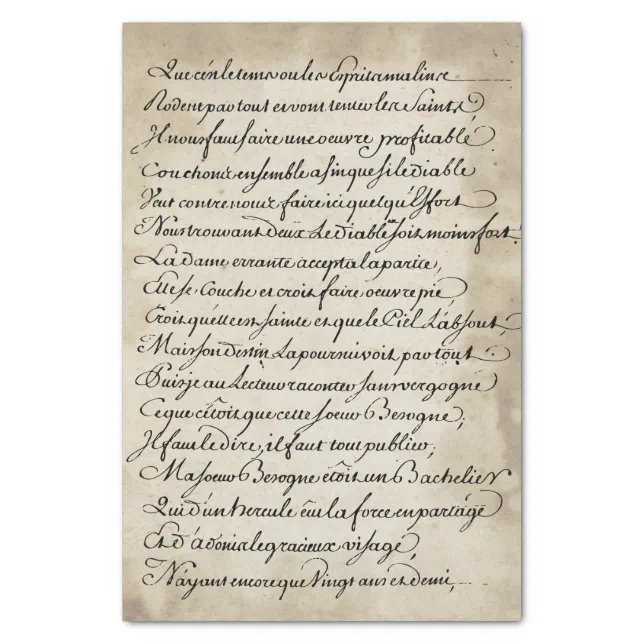 Que c'est le tems ou les Esprits malins
Rodent par tout et vont tenter les Saints,
Il nous faut faire une oeuvre profitable.
Couchons ensemble afin que si le diable
Veut contre nous faire ici quelqu'Effort
Nous trouvant deux Le diable en soit moins fort.
La dame errante accepta la partie,
Elle se Couche et croit faire oeuvre pie,
Croit qu'elle est sainte et que le Ciel L'absout
Mais son destin La poursuivoit par tout.
Puis je au Lecteur raconter sans vergogne
Ce que c'êtoit que cette soeur Besogne,
Il faut le dire, il faut tout publier,
Ma soeur Besogne êtoit un Bachelier
Qui d'un hercule eut la force en partage
Et d'adonis le gracieux visage,
N'ayant encore que Vingt ans et demi,